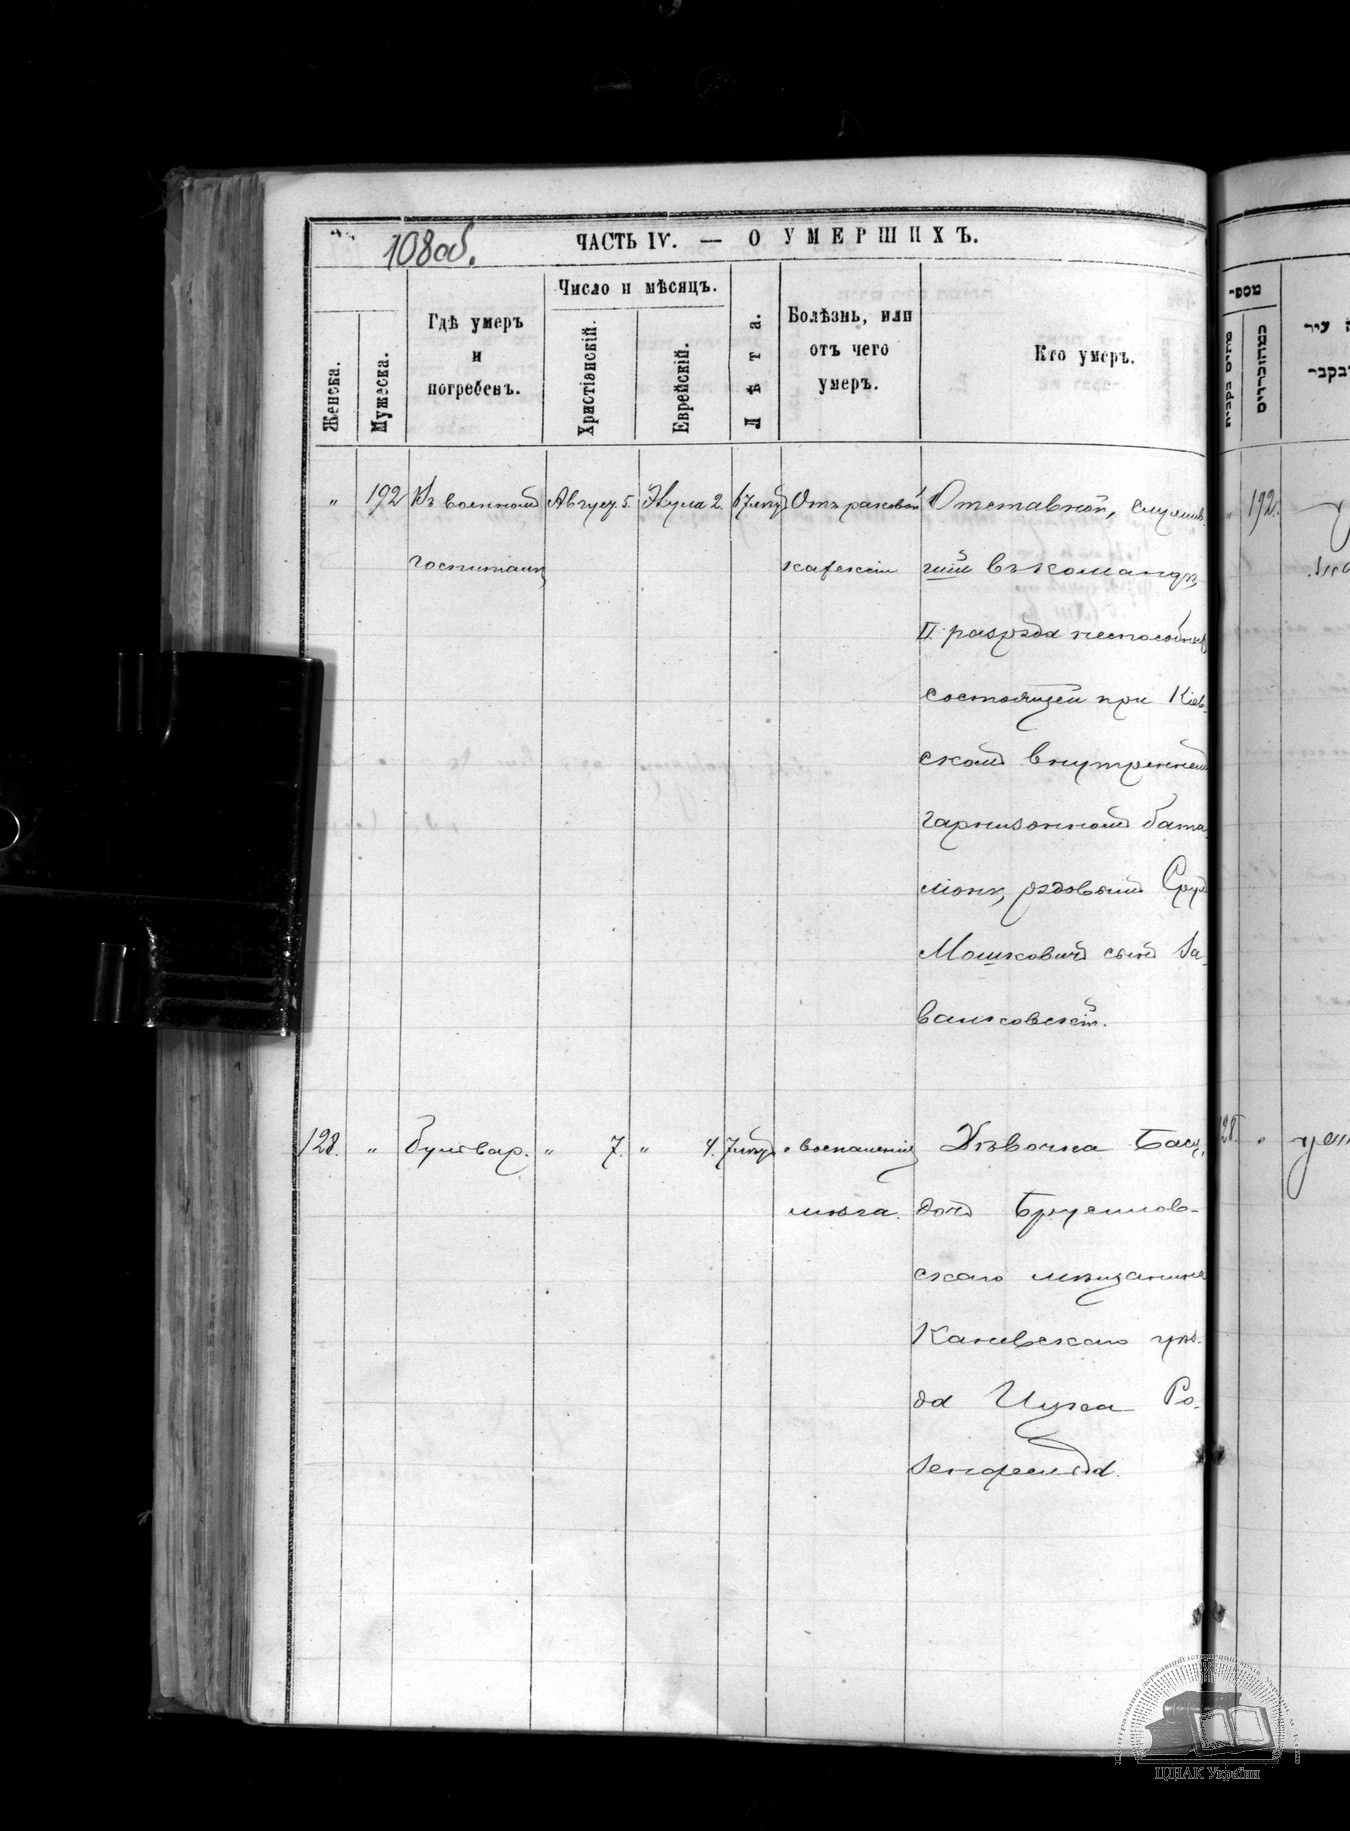 108 об.
ЧАСТЬ IV. — О УМЕРШИХЪ.
Женска.
Мужеска.
Гдѣ умеръ
и
погребенъ.
Число и мѣсяцъ.
Христіанскій.
Еврейскій.
Лѣта.
Болѣзнь, или
отъ чего
умеръ.
Кто умеръ.
" 192 Въ военномъ Август. 5. 2. 67 лѣтъ Отъ раковой Отставной, служив-
госпиталѣ кахексіи шій въ командѣ
II разряда неспособныхъ
состоящей при Кіев-
скомъ внутреннемъ
гарнизонномъ бата-
ліонѣ, рядовый Сруль
Мошковичъ сынъ За-
валковскій.
128. " бульвар. " 7. " 4. 7 лѣтъ " воспаленія Дѣвочка Бася,
мозга. дочь Брусилов-
скаго мѣщанина
Каневскаго уѣз-
да Ицка Ро-
зенфельда.
מספר
192.
128. "
ЦДІАК України